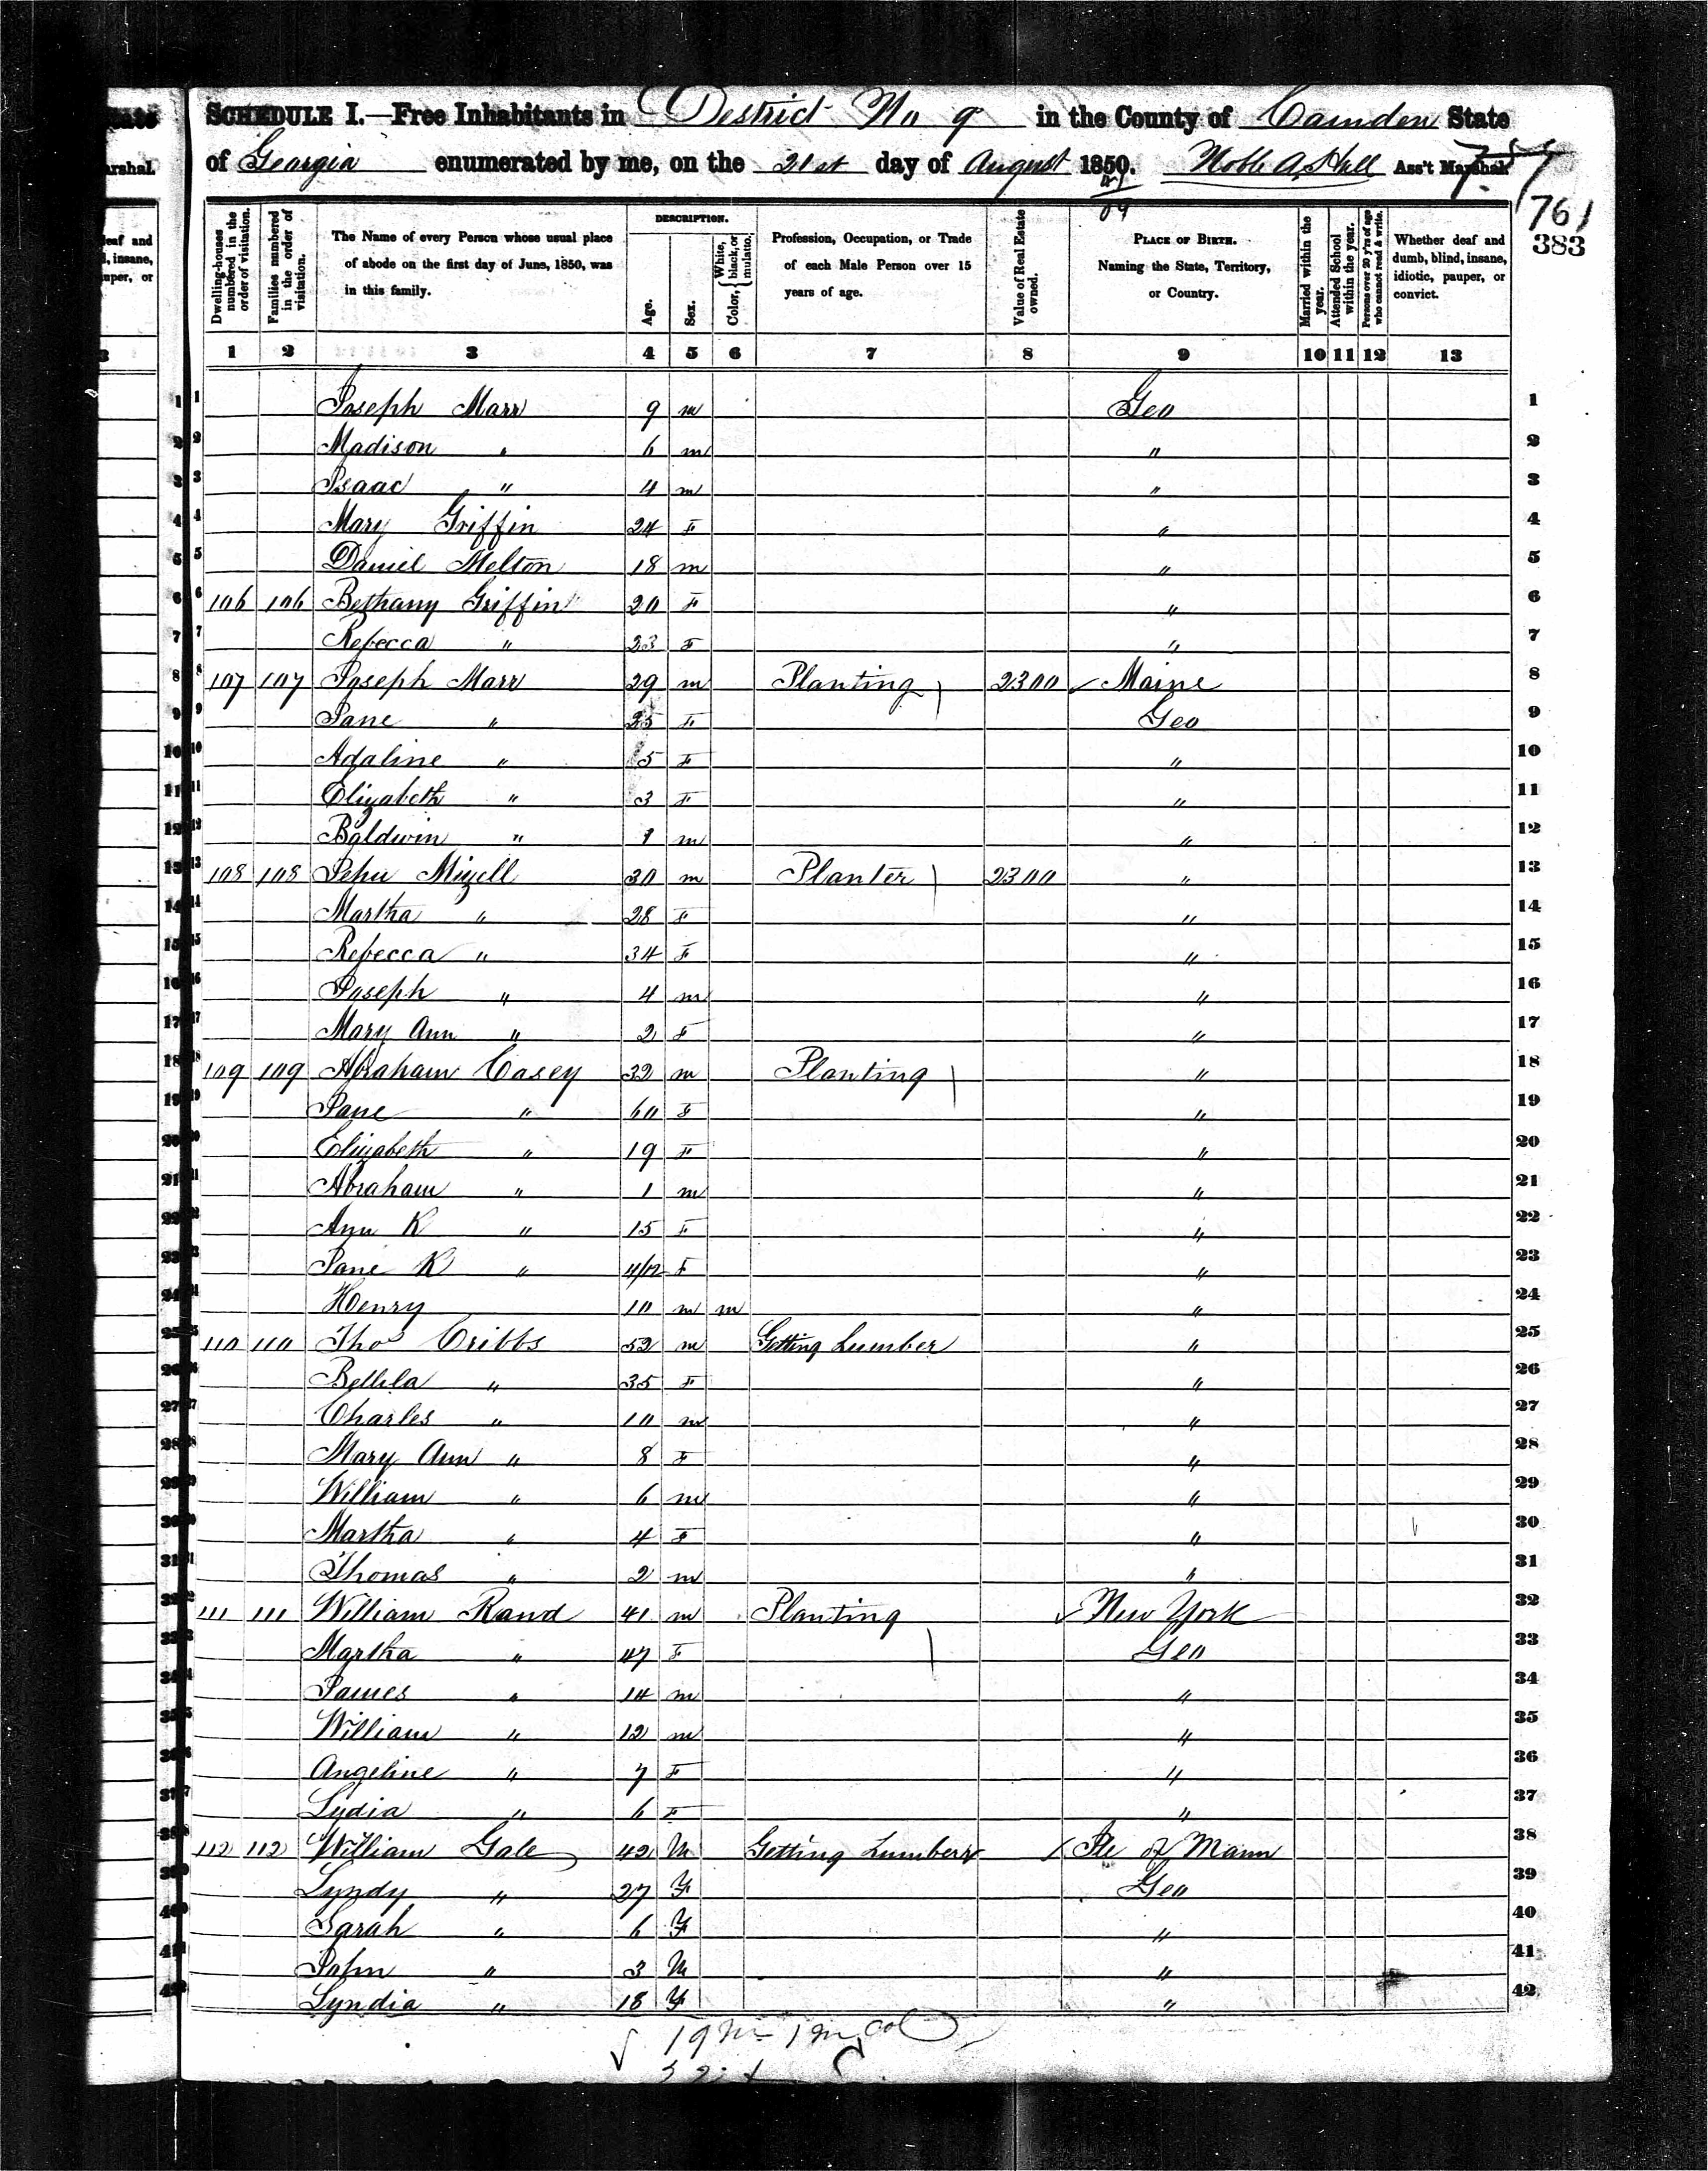 SCHEDULE I.—Free Inhabitants in District No 9 in the County of Camden State
of Georgia enumerated by me, on the 21st day of August 1850. Noble A. Hall Ass't Marshal.
761
383
Dwelling-houses numbered in the order of visitation.
Families numbered in the order of visitation.
The Name of every Person whose usual place of abode on the first day of June, 1850, was in this family.
DESCRIPTION.
Age.
Sex.
Color, { White, black, or mulatto.
Profession, Occupation, or Trade of each Male Person over 15 years of age.
Value of Real Estate owned.
PLACE OF BIRTH. Naming the State, Territory, or Country.
Married within the year.
Attended School within the year.
Persons over 20 y'rs of age who cannot read & write.
Whether deaf and dumb, blind, insane, idiotic, pauper, or convict.
1 2 3 4 5 6 7 8 9 10 11 12 13
1 Joseph Marr 9 m Geo 1
2 Madison " 6 m " 2
3 Isaac " 4 m " 3
4 Mary Griffin 24 F " 4
5 Daniel Melton 18 m " 5
6 106 106 Bethany Griffin 20 F " 6
7 Rebecca " 23 F " 7
8 107 107 Joseph Marr 29 m Planting 2300 Maine 8
9 Jane " 25 F Geo 9
10 Adaline " 5 F " 10
11 Elizabeth " 3 F " 11
12 Baldwin " 1 m " 12
13 108 108 Jehu Mizell 30 m Planter 2300 " 13
14 Martha " 28 F " 14
15 Rebecca " 34 F " 15
16 Joseph " 4 m " 16
17 Mary Ann " 2 F " 17
18 109 109 Abraham Casey 32 m Planting " 18
19 Jane " 60 F " 19
20 Elizabeth " 19 F " 20
21 Abraham " 1 m " 21
22 Ann K " 15 F " 22
23 Jane K " 4/12 F " 23
24 Henry 10 m m " 24
25 110 110 Thos Cribbs 52 m Getting Lumber " 25
26 " 35 F " 26
27 Charles " 10 m " 27
28 Mary Ann " 8 F " 28
29 William " 6 m " 29
30 Martha " 4 F " 30
31 Thomas " 2 m " 31
32 111 111 William Rand 41 m Planting New York 32
33 Martha " 47 F Geo 33
34 James " 14 m " 34
35 William " 12 m " 35
36 Angeline " 7 F " 36
37 Lydia " 6 F " 37
38 112 112 William Gale 42 M Getting Lumber Ile of Mann 38
39 Lyndy " 27 F Geo 39
40 Sarah " 6 F " 40
41 John " 3 M " 41
42 Lyndia " 18 F " 42
19 m 1 m col